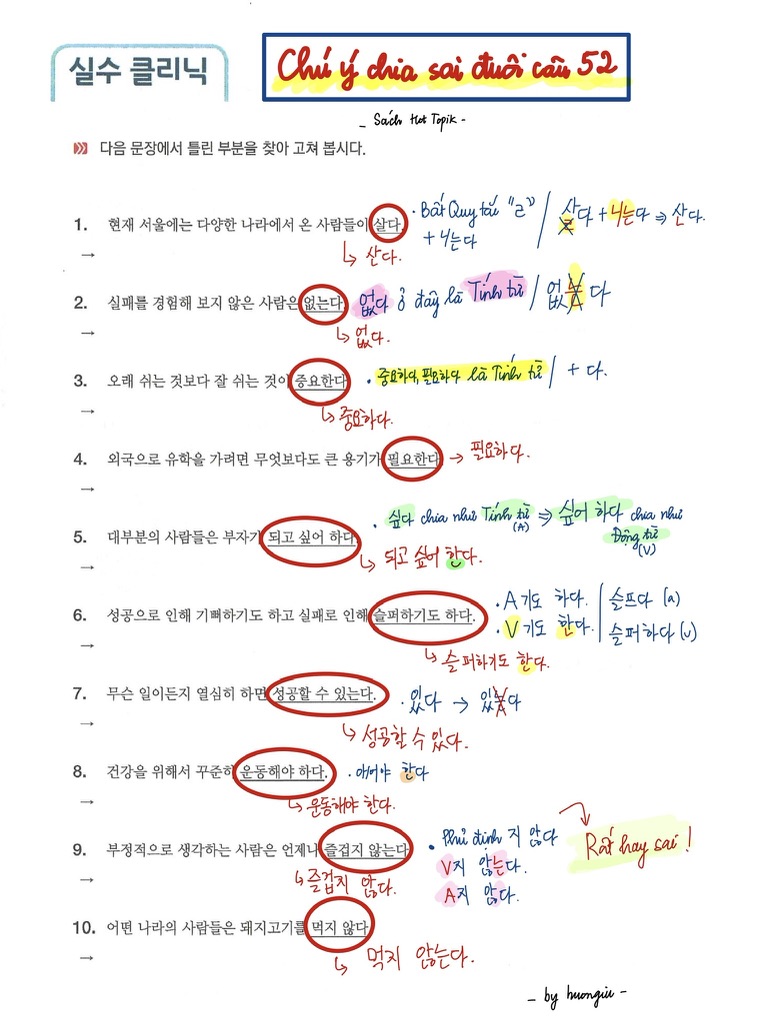 실수 클리닉
Chú ý chia sai đuôi câu 52
- Sách Hot Topik -
다음 문장에서 틀린 부분을 찾아 고쳐 봅시다.
1. 현재 서울에는 다양한 나라에서 온 사람들이 살다.
· Bất Quy tắc "ㄹ" + ㄴ는다 / 살다 + ㄴ는다 ⇒ 산다.
→
↳ 산다.
2. 실패를 경험해 보지 않은 사람은 없는다.
없다 ở đây là Tính từ / 없는다
→
↳ 없다.
3. 오래 쉬는 것보다 잘 쉬는 것이 중요한다.
· 중요하다, 필요하다 là Tính từ / + 다.
→
↳ 중요하다.
4. 외국으로 유학을 가려면 무엇보다도 큰 용기가 필요한다.
→ 필요하다.
→
5. 대부분의 사람들은 부자가 되고 싶어 하다.
· 싶다 chia như Tính từ (A) ⇒ 싶어 하다 chia như Động từ (V)
→
↳ 되고 싶어 한다.
6. 성공으로 인해 기뻐하기도 하고 실패로 인해 슬퍼하기도 하다.
· A기도 하다. | 슬프다 (a)
· V기도 한다. | 슬퍼하다 (v)
→
↳ 슬퍼하기도 한다.
7. 무슨 일이든지 열심히 하면 성공할 수 있는다.
· 있다 → 있는다
→
↳ 성공할 수 있다.
8. 건강을 위해서 꾸준히 운동해야 하다.
· 아/어야 한다
→
↳ 운동해야 한다.
9. 부정적으로 생각하는 사람은 언제나 즐겁지 않는다.
· Phủ định 지 않다
Rất hay sai!
V지 않는다.
A지 않다.
→
↳ 즐겁지 않다.
10. 어떤 나라의 사람들은 돼지고기를 먹지 않다.
→
↳ 먹지 않는다.
- by huongiu -